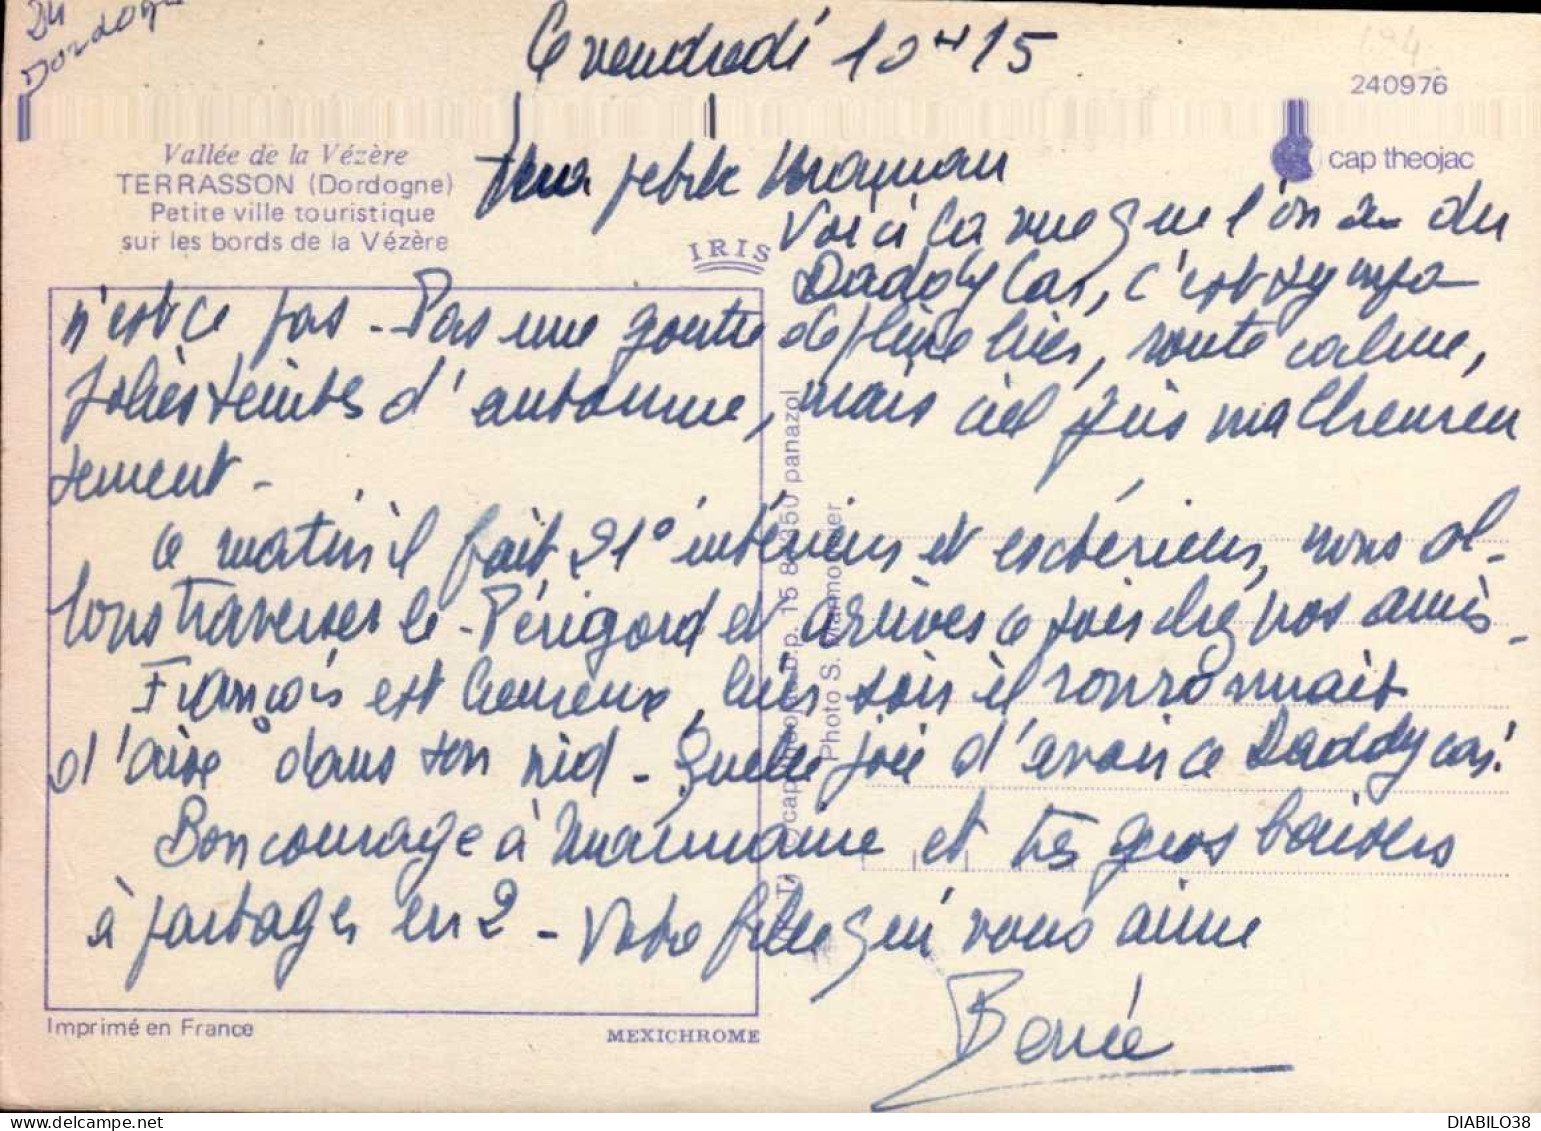 24
Dordogne
Le vendredi 10H15
240976
Vallée de la Vézère
TERRASSON (Dordogne)
Petite ville touristique
sur les bords de la Vézère
cap theojac
IRIS
Ma petite Maman
Voici la vue que l'on a du
Daddy Car, c'est sympa
n'est ce pas - Pas une goutte de pluie hier, route calme,
jolies teintes d'automne, mais ciel gris malheureu
sement -
Ce matin il fait 21° intérieur et extérieur, nous al-
lons traverser le Périgord et arriver ce soir chez nos amis -
François est heureux, hier soir il ronronnait
d'aise dans son nid - Quelle joie d'avoir ce Daddy car!
Bon courage à Marraine et très gros baisers
à partager en 2 - Votre fille qui vous aime
cap theojac b.p. 15 87350 panazol
Photo S. Marmounier
Imprimé en France
MEXICHROME
DIABILO38